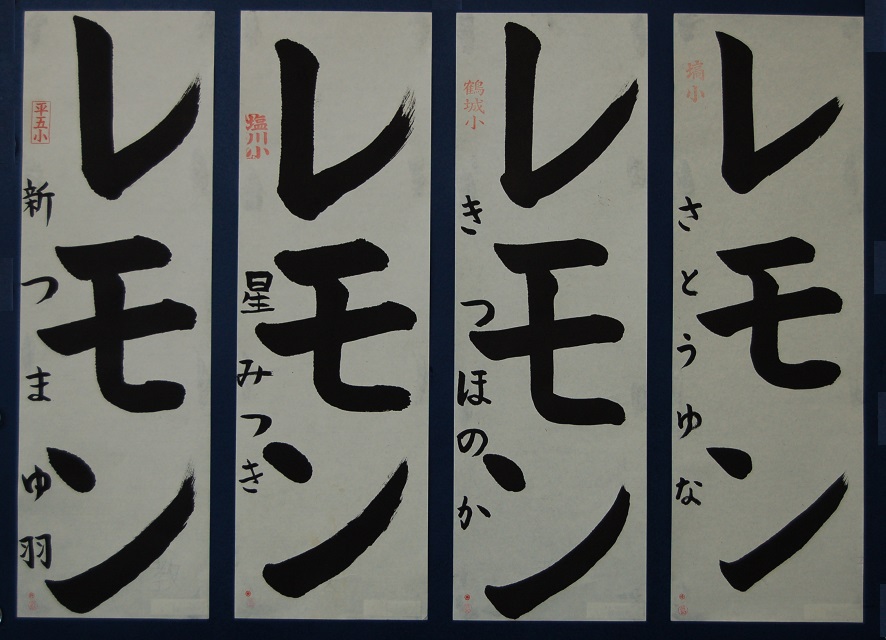 レモン
塙小
さとうゆな
レモン
鶴城小
きつほのか
レモン
塩川小
星みつき
レモン
平五小
新つまゆ羽